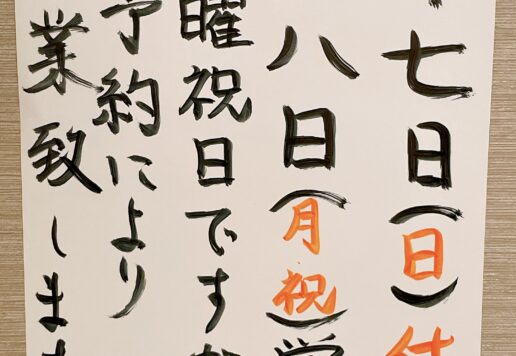 七日(日)休
八日(月祝)営
曜祝日ですが
予約により
業致します